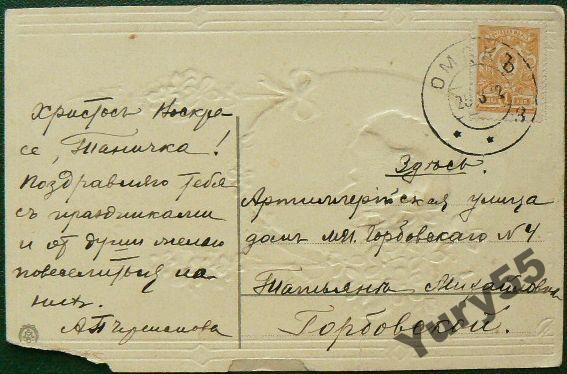 Христосъ Воскре-
се, Таничка!
Поздравляю тебя
съ праздниками
и от души желаю
повеселиться на
нихъ.
Здѣсь.
Артиллерійская улица
домъ Горбовскаго № 4
Татьянѣ Михайловнѣ
Горбовской.
ОМСКЪ
1
Yury55